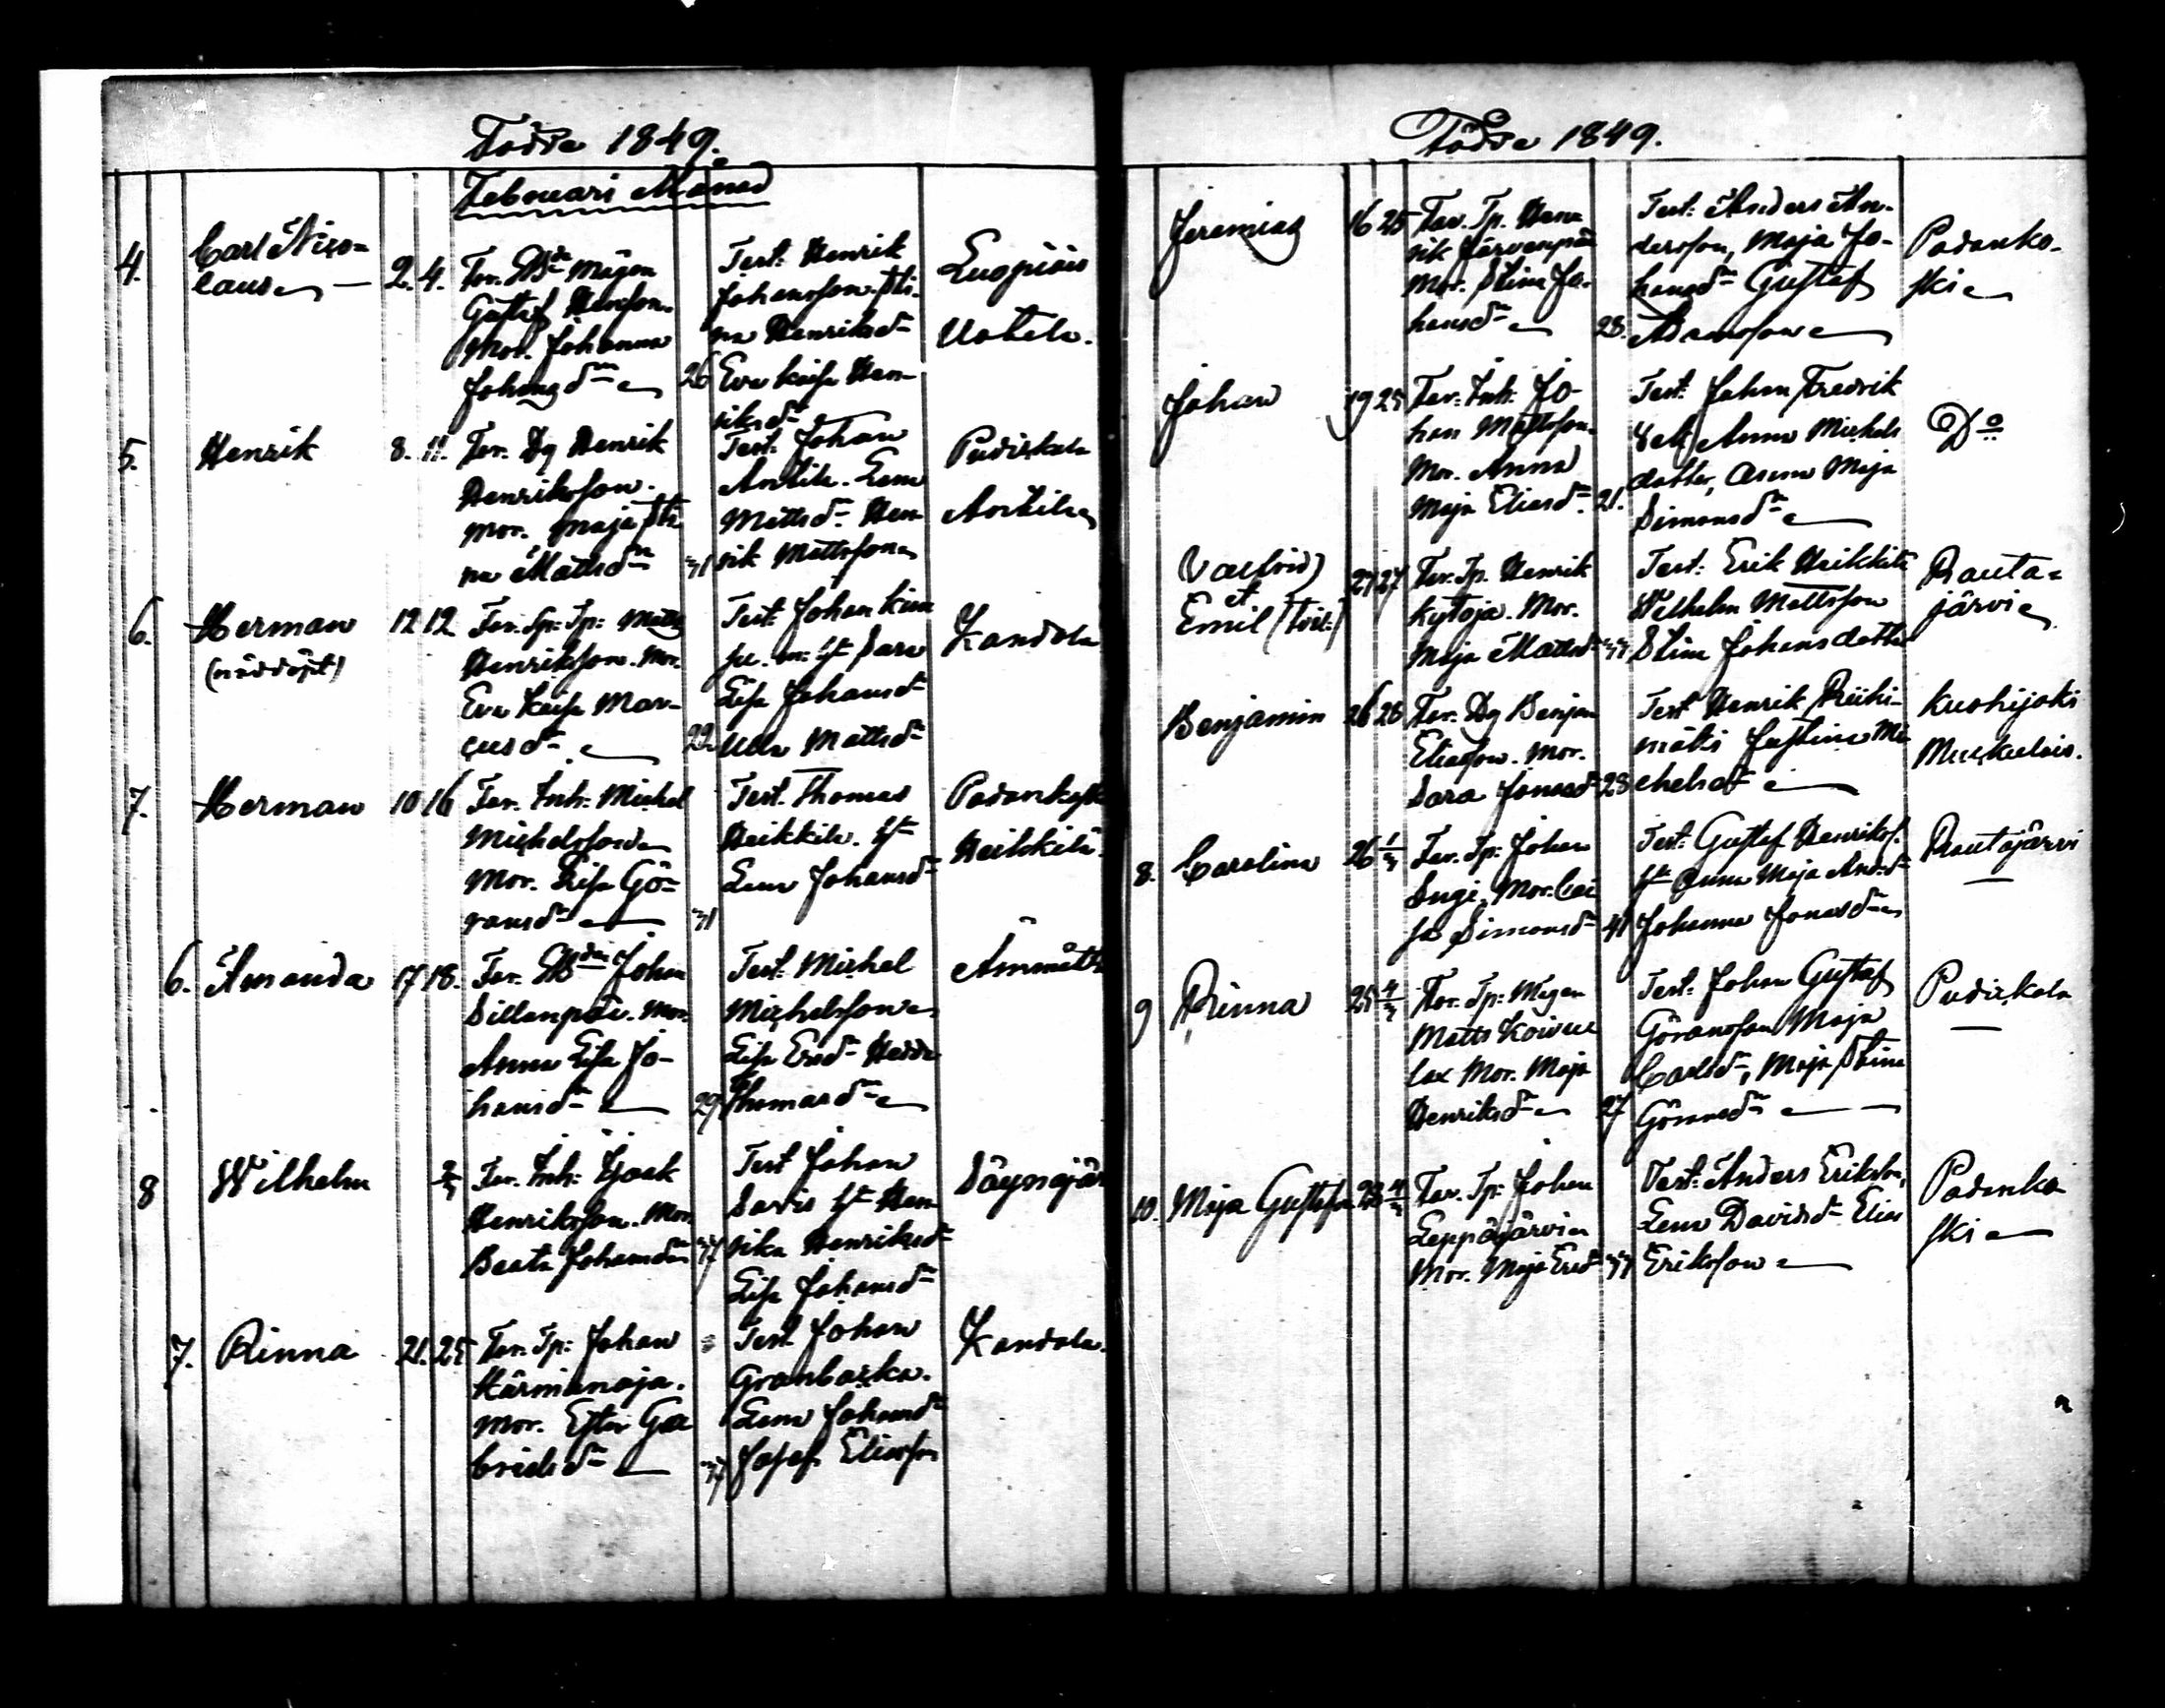 Födde 1849.
Februari Månad
4. Carl Nico-
laus 2. 4. Far. Bdn Mågen
Gustaf Henrsson.
Mor. Johanna
Johansdr 26
Test: Henrik
Johansson. Sti-
na Henriksdr
Eva Kaisa Hen-
riksdr
Luopiois
Uotila.
5. Henrik 8. 11. Far. Dg Henrik
Henriksson.
Mor. Maja Sti-
na Mattsdr 31
Test. Johan
Anttila. Lena
Mattsdr Hen-
rik Mattsson
Pudikkala
Anttila
6. Herman 12 12 Far. Sp. Tp: Matts
(nöddöpt) Henriksson. Mor.
Eva Kaisa Mar-
cusdr 22.
Test. Johan
Sara
Lisa Johansdr
Ulla Mattsdr
Kandola
7. Herman 10 16 Far. Inh: Michel
Michelsson
Mor. Lisa Gö-
ransdr 31
Test. Thomas
Heikkilä. Hu
Lena Johansdr
Padankoski
Heikkilä.
6. Amanda 17 18. Far. Bdn Johan
Sillanpää. Mor.
Anna Lisa Jo-
hansdr 29
Test: Michel
Michelsson
Lisa Ersdr Hedda
Thomasdr
Ämmätsä
8 Wilhelm 2/3 Far. Inh: Isaak
Henriksson. Mor.
Beata Johansdr 37
Test Johan
Hu Hen-
rika Henriksdr
Lisa Johansdr
Säynäjär
7. Rinna 21. 25 Far. Tp: Johan
Kärmenoja.
Mor. Ester Ga-
brielsdr 37
Test Johan
Granbacka.
Lena Johansdr
Josef Eliasson
Kandola.
Födde 1849.
Jeremias 16 25 Far. Tp. Hen-
rik Järvenpää
Mor. Stina Jo-
hansdr 28.
Test: Anders An-
dersson, Maja Jo-
hansdr Gustaf
Adamsson
Padanko-
ski
Johan 19 25 Far: Inh: Jo-
han Mattsson.
Mor. Anna
Maja Eliasdr 21.
Test: Johan Fredrik
Anna Michels
dotter, Anna Maja
Simonsdr
Do
David
et
Emil (tvil:) 27 27 Far. Tp. Henrik
Kytoja. Mor.
Maja Mattsdr
Test: Erik Heikkilä
Wilhelm Mattsson
Stina Johansdotter
Rauta-
järvi
Benjamin 26 28 Far. Dg Benjam
Eliasson. Mor.
Sara Jonasdr 23
Test Henrik Riihi-
mäki Justina Mi-
chelsdr
Kuohijoki
Muckulais.
8. Carolina 26 1/3 Far. Tp: Johan
Sugi. Mor. Cai-
sa Simonsdr 41
Test: Gustaf Henrikss.
Hu Anna Maja Andsdr
Johanna Jonasdr
Rautajärvi
9 Rinna 25 4/3 Far. Tp: Mågen
Matts Koivu-
lax Mor. Maja
Henriksdr 27
Test: Johan Gustaf
Göransson Maja
Carlsdr, Maja Stina
Göransdr
Pudikkala
10. Maja Gustafva 28 4/3 Far. Tp: Johan
Leppäjärvi
Mor. Maja Ersdr
Test: Anders Eriksson,
Lena Davidsdr Elias
Eriksson
Padanko
ski